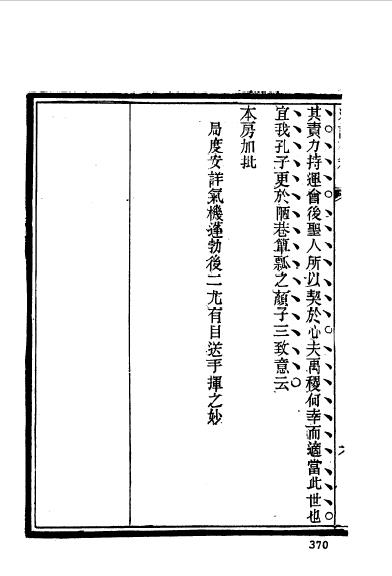 其責力持運會後聖人所以契於心夫禹稷何幸而適當此世也
宜我孔子更於陋巷簞瓢之顏子三致意云
本房加批
局度安詳氣機蓬勃後二尤有目送手揮之妙
370